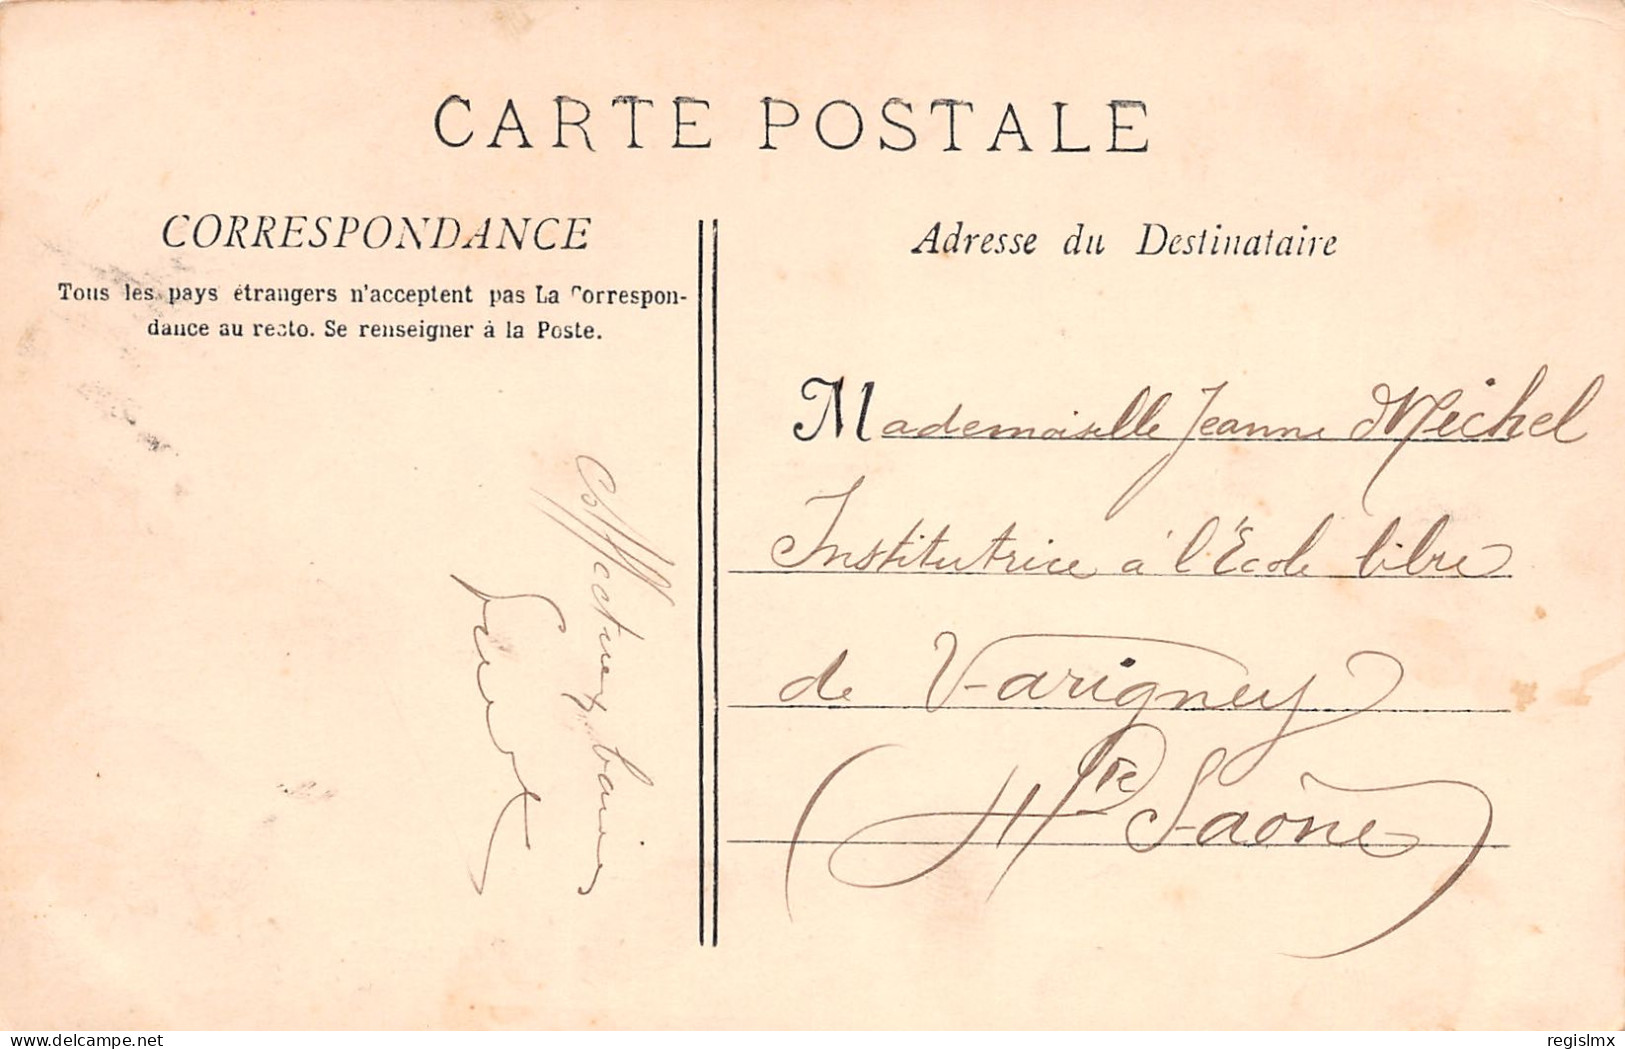 CARTE POSTALE
CORRESPONDANCE
Tous les pays étrangers n'acceptent pas La Correspon-
dance au recto. Se renseigner à la Poste.
Affectueux baisers
Adresse du Destinataire
Mademoiselle Jeanne Michel
Institutrice à l'École libre
de Varigney
(Hte Saône)
delcampe.net
regislmx